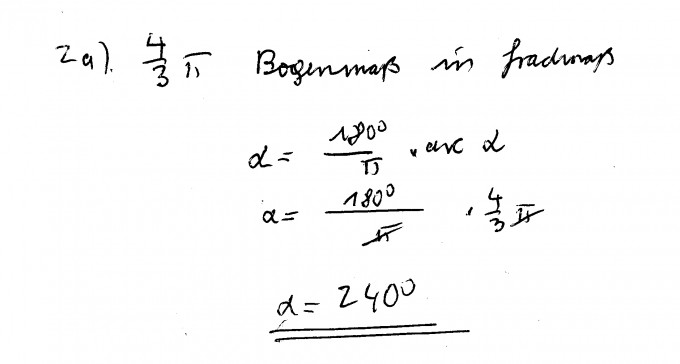 2a). 4/3 π Bogenmaß in Gradmaß
α = 180°/π · arc α
α = 180°/π · 4/3 π
α = 240°